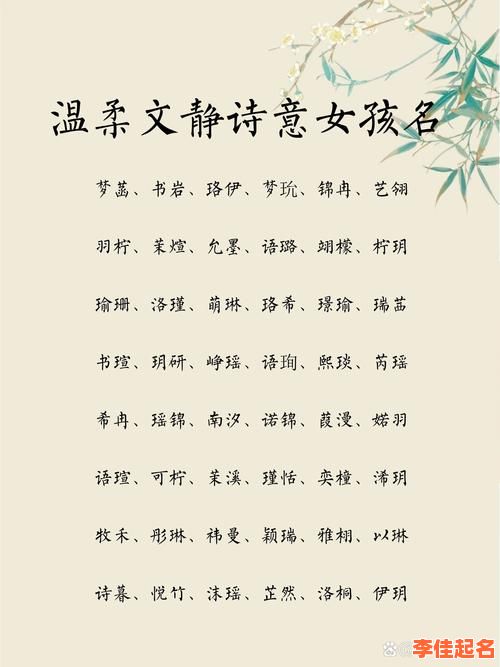 温柔文静诗意女孩名
梦菡、书岩、珞伊、梦玧、锦冉、艺翎
羽柠、茉煊、允墨、语璐、翊檬、柠玥
瑜珊、洛瑾、萌琳、珞希、璟瑜、瑞茜
书瑄、玥研、峥瑶、语珣、熙琰、芮瑶
希冉、瑶锦、南汐、诺锦、葭漫、婼羽
语瑄、可柠、茉溪、瑾恬、奕橦、浠玥
牧禾、彤琳、祎曼、颖瑞、雅栩、以琳
诗暮、悦竹、沫瑶、芷然、洛桐、伊玥
李佳起名